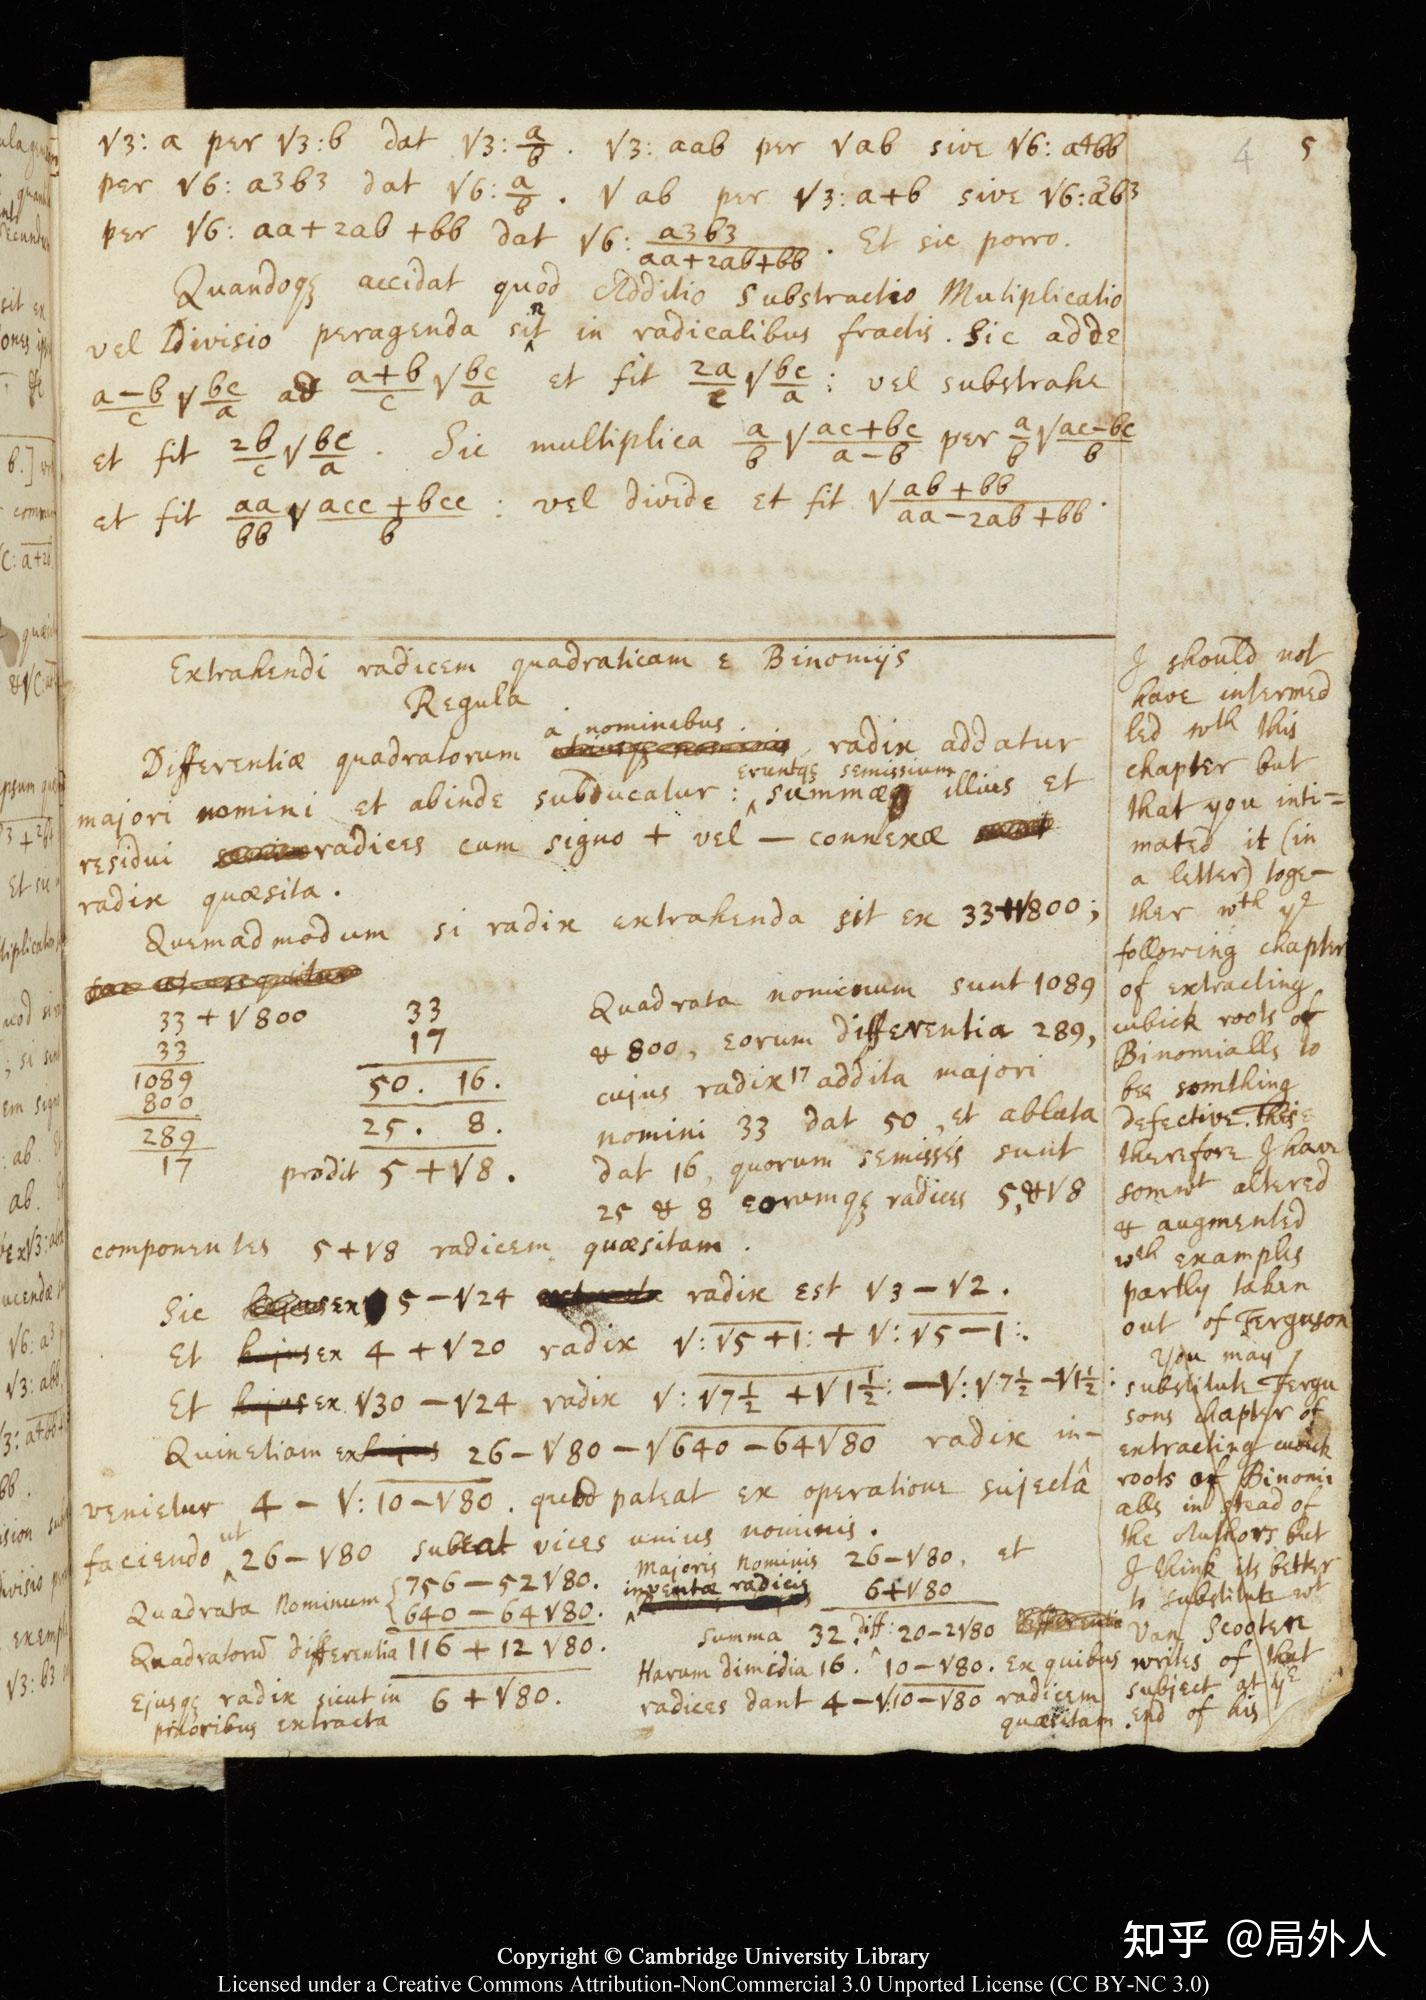 4 5
√3: a per √3: b dat √3: a/b . √3: aab per √ab sive √6: a4bb
per √6: a3b3 dat √6: a/b . √ab per √3: a+b sive √6: a3b3
per √6: aa+2ab+bb dat √6: a3b3/aa+2ab+bb . Et sic porro.
Quandoqꝫ accidat quod Additio Substractio Mutiplicatio
vel Divisio peragenda sint in radicalibus fractis. Sic adde
a−b/c √bc/a ad a+b/c √bc/a et fit 2a/c √bc/a : vel substrahe
et fit 2b/c √bc/a . Sic multiplica a/b √ac+bc/a−b per a/b √ac−bc/b
et fit aa/bb √acc+bcc/b : vel divide et fit √ab+bb/aa−2ab+bb .
Extrahendi radicem quadraticam e Binomijs
Regula
Differentiæ quadratorum a nominibus radix addatur
majori nomini et abinde subducatur: eruntqꝫ semissium summæ illius et
residui radices cum signo + vel − connexæ
radix quæsita.
Quemadmodum si radix extrahenda sit ex 33+√800;
33 + √800 33
33 17
1089 50. 16.
800 25. 8.
289
17 prodit 5 + √8.
Quadrata nominum sunt 1089
& 800, eorum differentia 289,
cujus radix 17 addita majori
nomini 33 dat 50, et ablata
dat 16, quorum semisses sunt
25 & 8 eorumqꝫ radices 5, & √8
componentes 5+√8 radicem quæsitam.
Sic ex 5−√24 radix est √3−√2.
Et ex 4+√20 radix √:√5+1: + √:√5−1:.
Et ex √30−√24 radix √:√7½ +√1½: −√:√7½−√1½:
Quinetiam ex 26−√80−√640−64√80 radix in-
venietur 4 − √:10−√80. quod pateat ex operatione sujectâ
faciendo ut 26−√80 subeat vices unius nominis.
Quadrata Nominum { 756−52√80.
640−64√80.
Quadratorū differentia 116 + 12√80.
Ejusqꝫ radix sicut in 6+√80.
prioribus extracta
Majoris Nominis 26−√80, et
inventæ radicis 6+√80
summa 32. diff: 20−2√80
Harum dimidia 16. 10−√80. Ex quibus
radices dant 4−√:10−√80 radicem
quæsitam.
I should not
have intermed
led wth this
chapter but
that you inti=
mated it (in
a letter) toge-
ther wth ye
following chapter
of extracting
cubick roots of
Binomialls to
bee somthing
defective. This
therefore I have
somwt altered
& augmented
wth examples
partly taken
out of Ferguson
You may
substitute Fergu
sons chapter of
extracting cubick
roots of Binomi
alls in stead of
the Authors but
I think its better
to substitute wt
Van Scooten
writes of that
subject at ye
end of his
知乎 @局外人
Copyright © Cambridge University Library
Licensed under a Creative Commons Attribution-NonCommercial 3.0 Unported License (CC BY-NC 3.0)